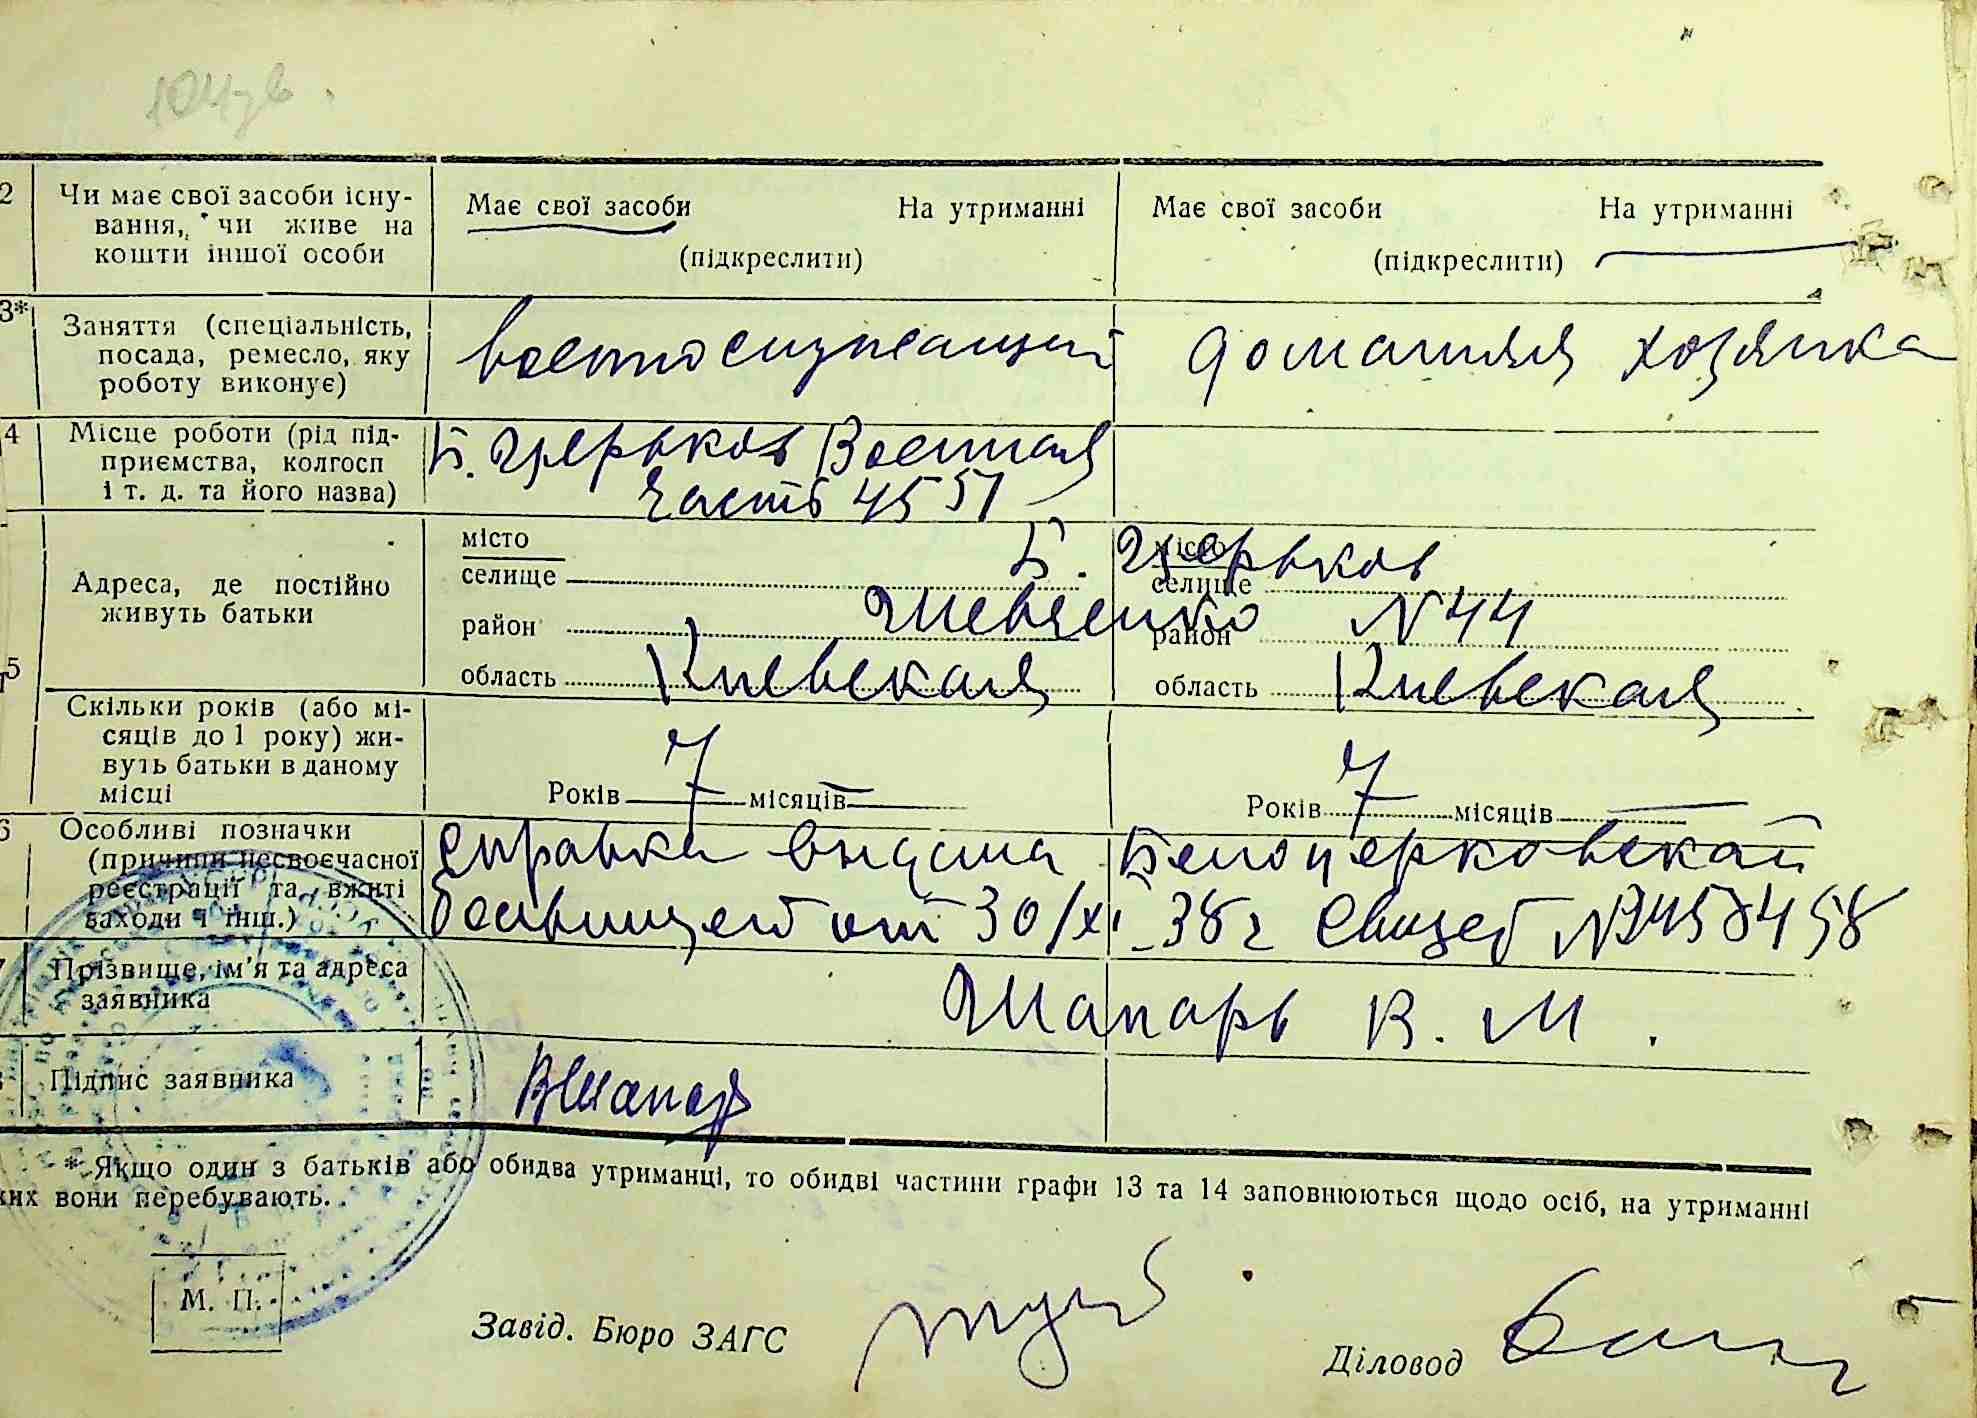 2 Чи має свої засоби існу- Має свої засоби На утриманні Має свої засоби На утриманні
вання, чи живе на
кошти іншої особи (підкреслити) (підкреслити)
3* Заняття (спеціальність,
посада, ремесло, яку военнослужащий домашняя хозяйка
роботу виконує)
4 Місце роботи (рід під- Б. Церьков Военная
приємства, колгосп
і т. д. та його назва) часть 4551
місто Б. Церьков місто
селище селище
Адреса, де постійно
живуть батьки
район Шевченко район N 44
область Киевская область Киевская
5
Скільки років (або мі-
сяців до 1 року) жи-
вуть батьки в даному
місці Років 7 місяців — Років 7 місяців —
6 Особливі позначки справка выдана Белоцерковской
(причини несвоєчасної
реєстрації та вжиті
заходи і інш.) больницей от 30/XI-38г Свидет №
7 Прізвище, ім'я та адреса
заявника Шапарь В. М.
Підпис заявника ВШапарь
* Якщо один з батьків або обидва утриманці, то обидві частини графи 13 та 14 заповнюються щодо осіб, на утриманні
ких вони перебувають.
М. П.
Завід. Бюро ЗАГС
Діловод